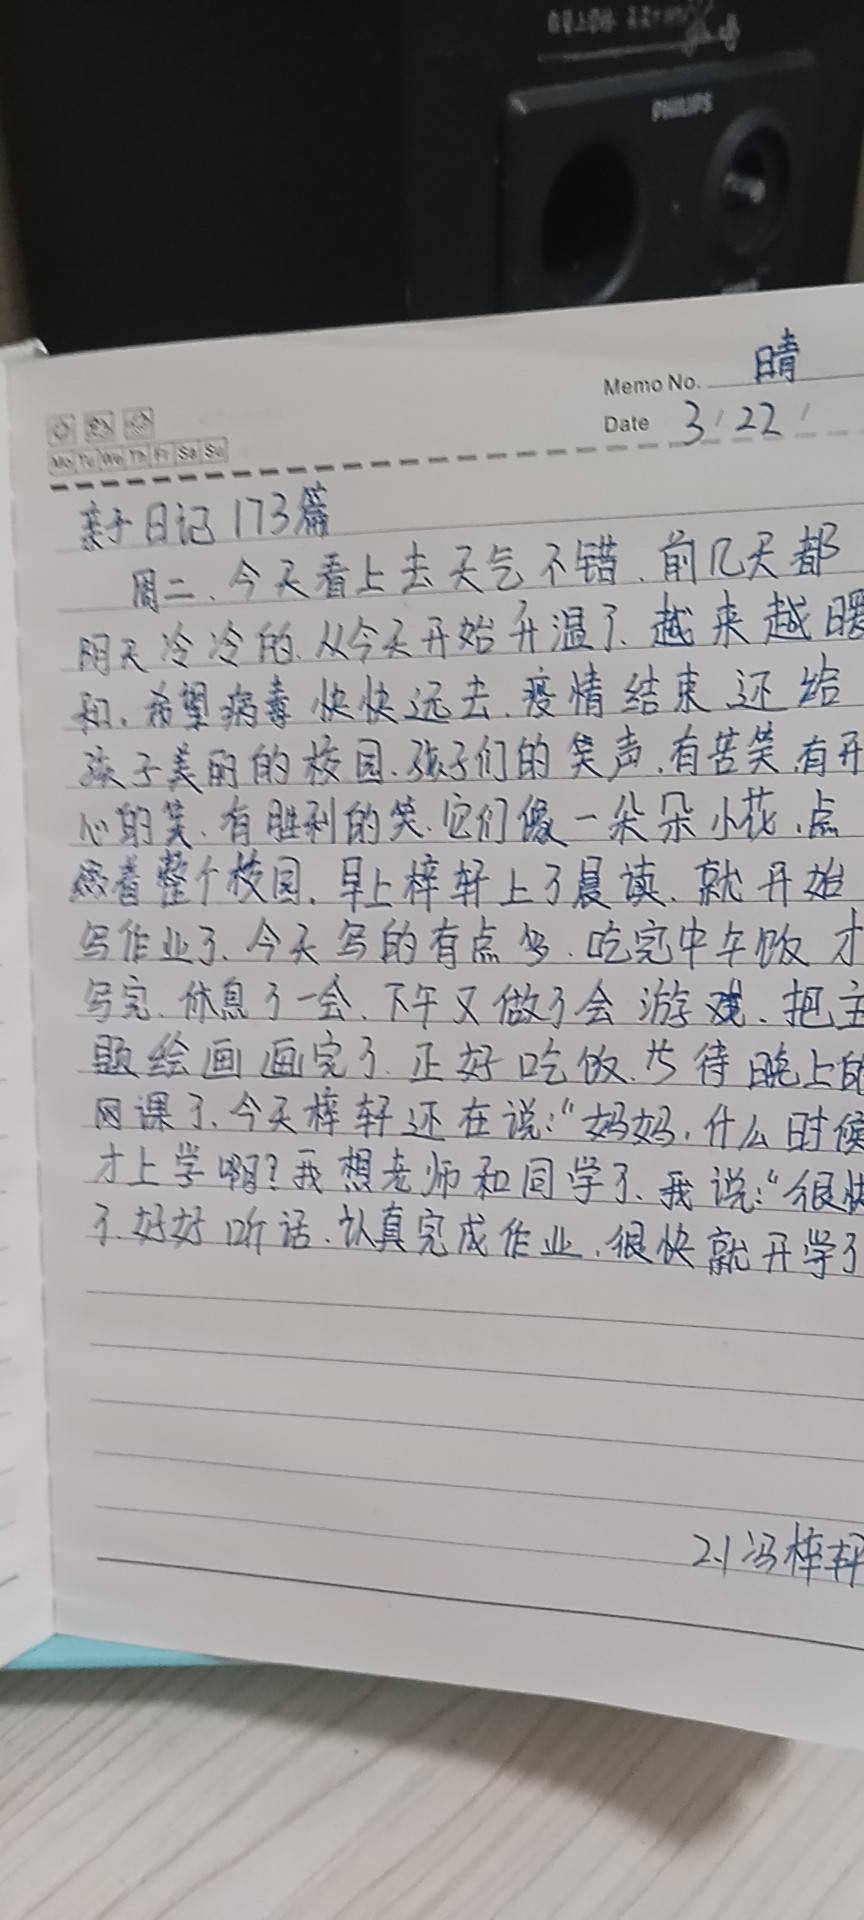 PHILIPS
Memo No. 晴
Date 3/22/
Mo Tu We Th Fr Sa Su
亲子日记173篇
周二、今天看上去天气不错、前几天都
阴天冷冷的、从今天开始升温了、越来越暖
和、希望病毒快快远去、疫情结束还给
孩子美丽的校园、孩子们的笑声、有苦笑、有开
心的笑、有胜利的笑、它们像一朵朵小花、点
缀着整个校园、早上梓轩上了晨读、就开始
写作业了、今天写的有点多、吃完中午饭才
写完、休息了一会、下午又做了会游戏、把主
题绘画画完了、正好吃饭、等待晚上的
网课了、今天梓轩还在说:“妈妈、什么时候
才上学啊?我想老师和同学了、我说:“很快
了、好好听话、认真完成作业、很快就开学了
2.1冯梓轩